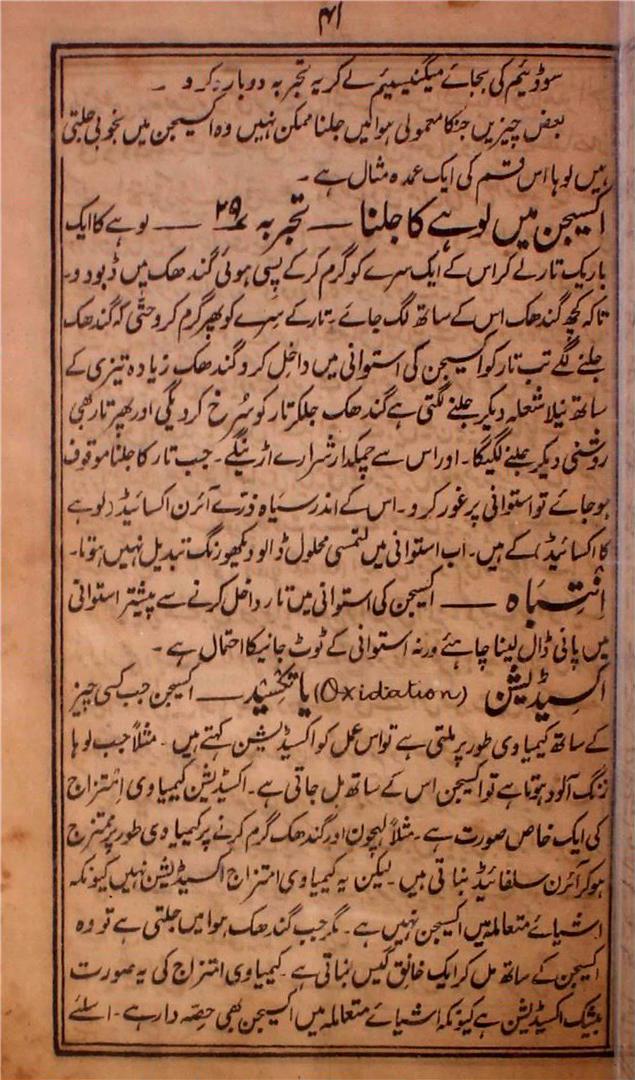 ۴۱
سوڈیئم کی بجائے میگنیسیئم لے کر یہ تجربہ دوبارہ کرو ۔
بعض چیزیں جنکا معمولی ہوا میں جلنا ممکن نہیں وہ اکسیجن میں بخوبی جلتی
ہیں لوہا اس قسم کی ایک عمدہ مثال ہے ۔
اکسیجن میں لوہے کا جلنا — تجربہ ۲۹ — لوہے کا ایک
باریک تار لے کر اس کے ایک سرے کو گرم کر کے پسی ہوئی گندھک میں ڈبو دو۔
تاکہ کچھ گندھک اس کے ساتھ لگ جائے ۔ تار کے سرے کو پھر گرم کرو حتّٰی کہ گندھک
جلنے لگے تب تار کو اکسیجن کی استوانی میں داخل کرو گندھک زیادہ تیزی کے
ساتھ نیلا شعلہ دیکر جلنے لگتی ہے گندھک جلکر تار کو سُرخ کر دیگی اور پھر تار بھی
روشنی دیکر جلنے لگیگا۔ اور اس سے چمکدار شرارے اڑینگے ۔ جب تار کا جلنا موقوف
ہو جائے تو استوانی پر غور کرو ۔ اس کے اندر سیاہ ذرّے آئرن اکسائیڈ (لوہے
کا اکسائیڈ) کے ہیں۔ اب استوانی میں لتمسی محلول ڈالو دیکھو رنگ تبدیل نہیں ہوتا۔
اِنتِبَاہ — اکسیجن کی استوانی میں تار داخل کرنے سے پیشتر استوانی
میں پانی ڈال لینا چاہئے ورنہ استوانی کے ٹوٹ جانیکا احتمال ہے ۔
اکسیڈیشن (Oxidation) یا تکسید — اکسیجن جب کسی چیز
کے ساتھ کیمیاوی طور پر ملتی ہے تو اس عمل کو اکسیڈیشن کہتے ہیں ۔ مثلاً جب لوہا
زنگ آلود ہوتا ہے تو اکسیجن اس کے ساتھ مل جاتی ہے۔ اکسڈیشن کیمیاوی اِمتزاج
کی ایک خاص صورت ہے ۔ مثلاً لہچون اور گندھک گرم کرنے پر کیمیاوی طور پر ممتزج
ہو کر آئرن سلفائیڈ بناتی ہیں ۔ لیکن یہ کیمیاوی امتزاج اکسیڈیشن نہیں کیونکہ
اشیائے متعاملہ میں اکسیجن نہیں ہے ۔ مگر جب گندھک ہوا میں جلتی ہے تو وہ
اکسیجن کے ساتھ مل کر ایک خانق گیس بناتی ہے ۔ کیمیاوی امتزاج کی یہ صورت
بیشک اکسیڈیشن ہے کیونکہ اشیائے متعاملہ میں اکسیجن بھی حِصّہ دار ہے ۔ اسلئے